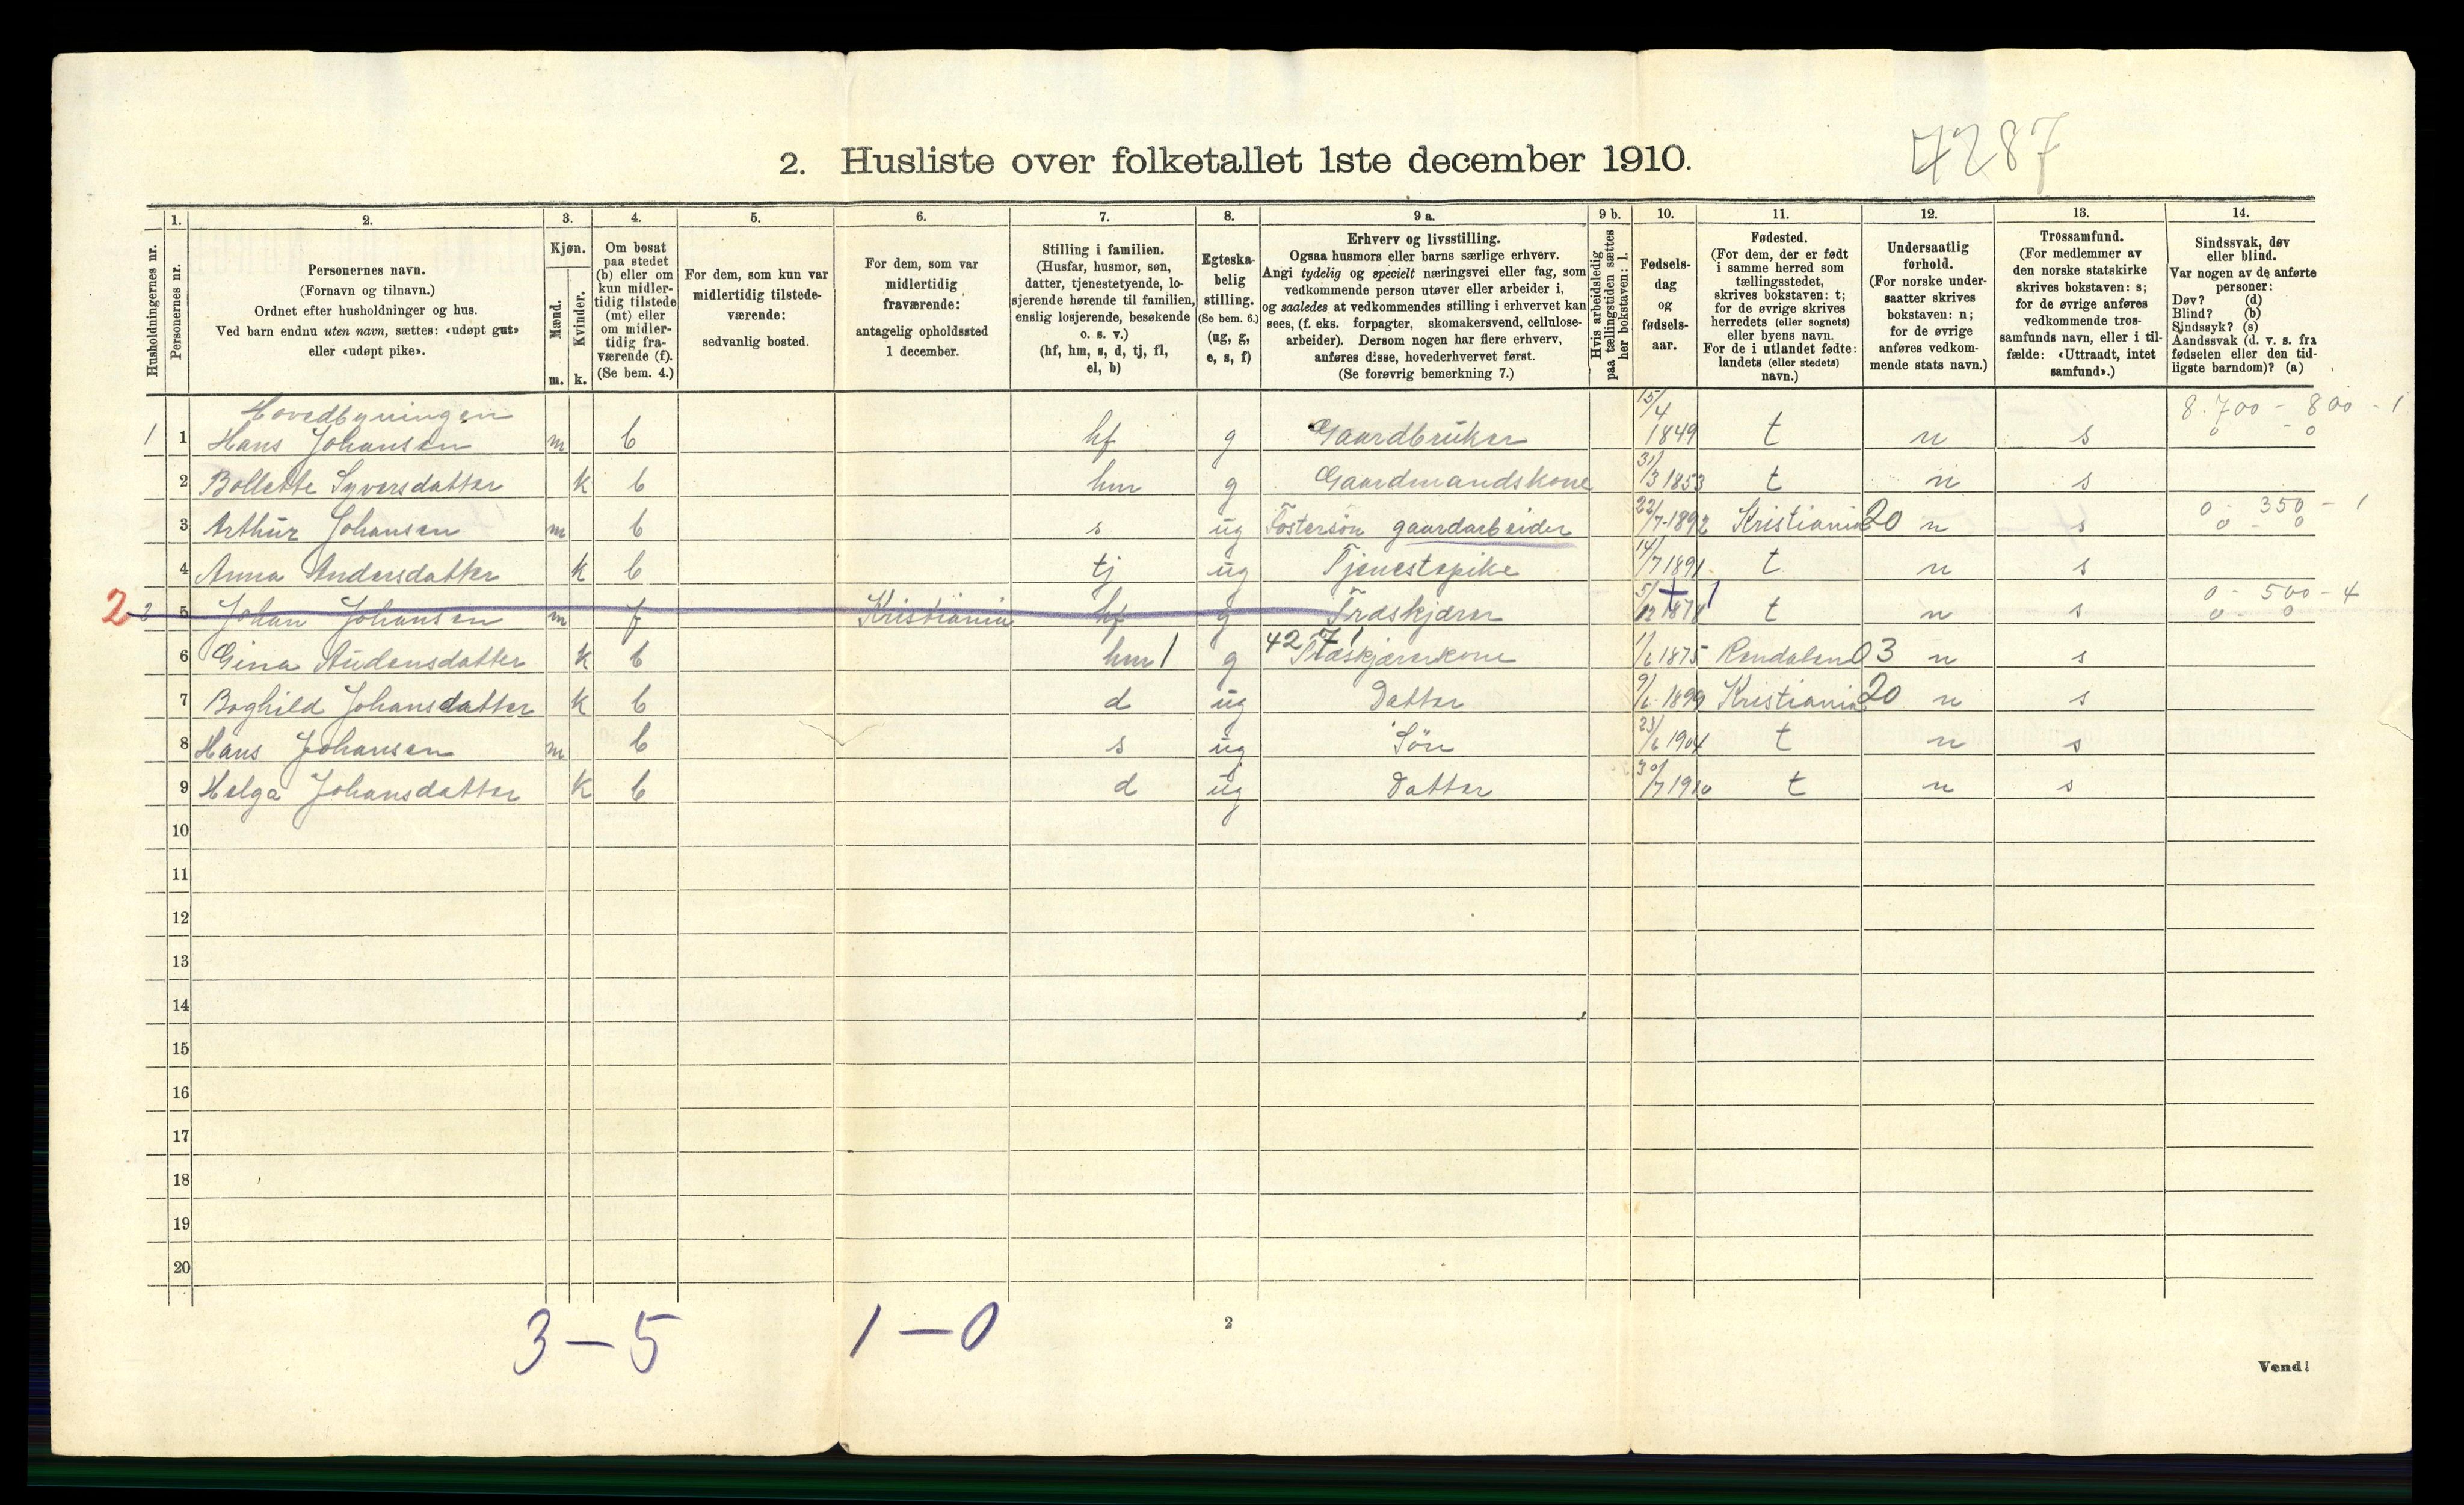 2. Husliste over folketallet 1ste december 1910.
4287
Husholdningernes nr.
1. Personernes nr.
2. Personernes navn. (Fornavn og tilnavn.) Ordnet efter husholdninger og hus. Ved barn endnu uten navn, sættes: «udøpt gut» eller «udøpt pike».
3. Kjøn. Mænd. m. Kvinder. k.
4. Om bosat paa stedet (b) eller om kun midlertidig tilstede (mt) eller om midlertidig fraværende (f). (Se bem. 4.)
5. For dem, som kun var midlertidig tilstedeværende: sedvanlig bosted.
6. For dem, som var midlertidig fraværende: antagelig opholdssted 1 december.
7. Stilling i familien. (Husfar, husmor, søn, datter, tjenestetyende, losjerende hørende til familien, enslig losjerende, besøkende o. s. v.) (hf, hm, s, d, tj, fl, el, b)
8. Egteskabelig stilling. (Se bem. 6.) (ug, g, e, s, f)
9 a. Erhverv og livsstilling. Ogsaa husmors eller barns særlige erhverv. Angi tydelig og specielt næringsvei eller fag, som vedkommende person utøver eller arbeider i, og saaledes at vedkommendes stilling i erhvervet kan sees, (f. eks. forpagter, skomakersvend, cellulosearbeider). Dersom nogen har flere erhverv, anføres disse, hovederhvervet først. (Se forøvrig bemerkning 7.)
9 b. Hvis arbeidsledig paa tællingstiden sættes her bokstaven: l.
10. Fødselsdag og fødselsaar.
11. Fødested. (For dem, der er født i samme herred som tællingsstedet, skrives bokstaven: t; for de øvrige skrives herredets (eller sognets) eller byens navn. For de i utlandet fødte: landets (eller stedets) navn.)
12. Undersaatlig forhold. (For norske undersaatter skrives bokstaven: n; for de øvrige anføres vedkommende stats navn.)
13. Trossamfund. (For medlemmer av den norske statskirke skrives bokstaven: s; for de øvrige anføres vedkommende trossamfunds navn, eller i tilfælde: «Uttraadt, intet samfund».)
14. Sindssvak, døv eller blind. Var nogen av de anførte personer: Døv? (d) Blind? (b) Sindssyk? (s) Aandssvak (d. v. s. fra fødselen eller den tidligste barndom)? (a)
Hovedbyningen 8.700 - 800 - 1
1 1 Hans Johansen m b hf g Gaardbruker 15/4 1849 t n s 0 - 0
2 Bollette Syversdatter k b hm g Gaardmandskone 31/3 1853 t n s
3 Arthur Johansen m b s ug Fostersøn gaardarbeider 22/7-1892 Kristiania 20 n s 0 - 350 - 1 0 - 0
4 Anna Andersdatter k b tj ug Tjenestepike 14/7 1891 t n s
2 2 5 Johan Johansen m f Kristiania hf g Træskjærer 5/12 1874 t n s 0 - 500 - 4 0 - 0
6 Gina Audensdatter k b hm 1 g 42 71 Træskjærerkone 1/6 1875 Rendalen 03 n s
7 Boghild Johansdatter k b d ug Datter 9/6-1899 Kristiania 20 n s
8 Hans Johansen m b s ug Sön 23/6 1904 t n s
9 Helga Johansdatter k b d ug Datter 30/7 1910 t n s
10
11
12
13
14
15
16
17
18
19
20
3 – 5 1 – 0
2
Vend!